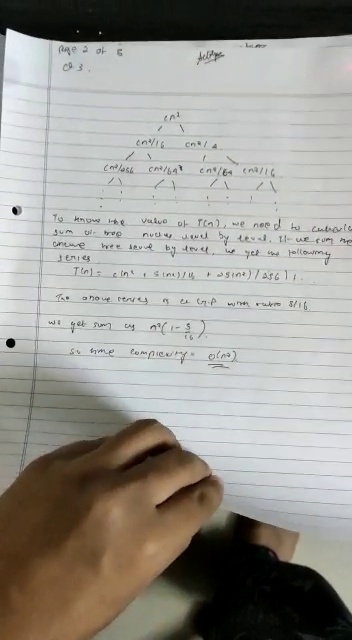 Page 2 of 5
Q3.
cn²
cn²/16 cn²/4
cn²/256 cn²/64 cn²/64 cn²/16
To know the value of T(n), we need to calculate
sum of tree nodes level by level. If we sum the
above tree level by level, we get the following
series
T(n) = c(n² + 5(n²)/16 + 25(n²)/256)
The above series is a G.P with ratio 5/16
we get sum as n²(1 - 5/16)
So time complexity = O(n²)